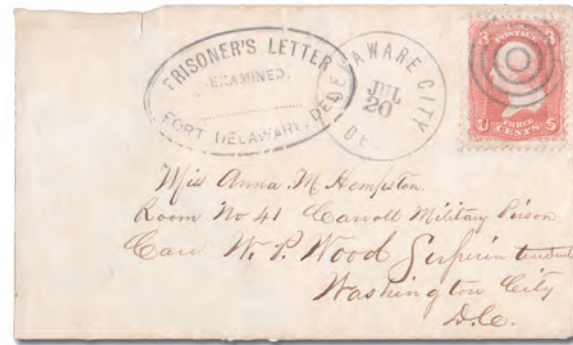 PRISONER'S LETTER
EXAMINED.
FORT DELAWARE, DEL
DELAWARE CITY
JUL
20
DE
3 POSTAGE 3
U THREE CENTS S
Miss Anna M Hempston.
Room No 41 Carroll Military Prison
Care W. P. Wood Superintendent
Washington City
D.C.